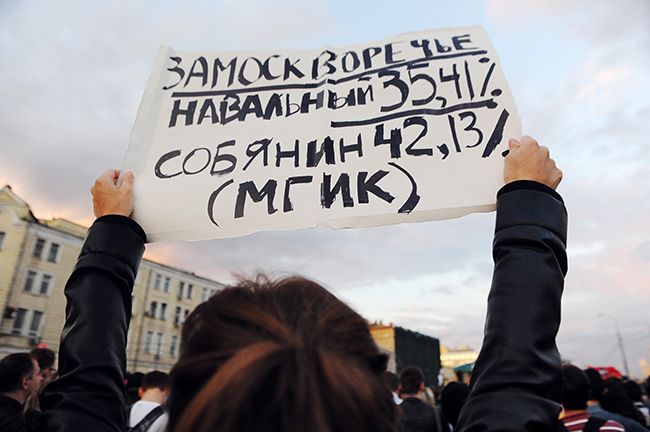 ЗАМОСКВОРЕЧЬЕ
НАВАЛЬНЫЙ 35,41%
СОБЯНИН 42,13%
(МГИК)